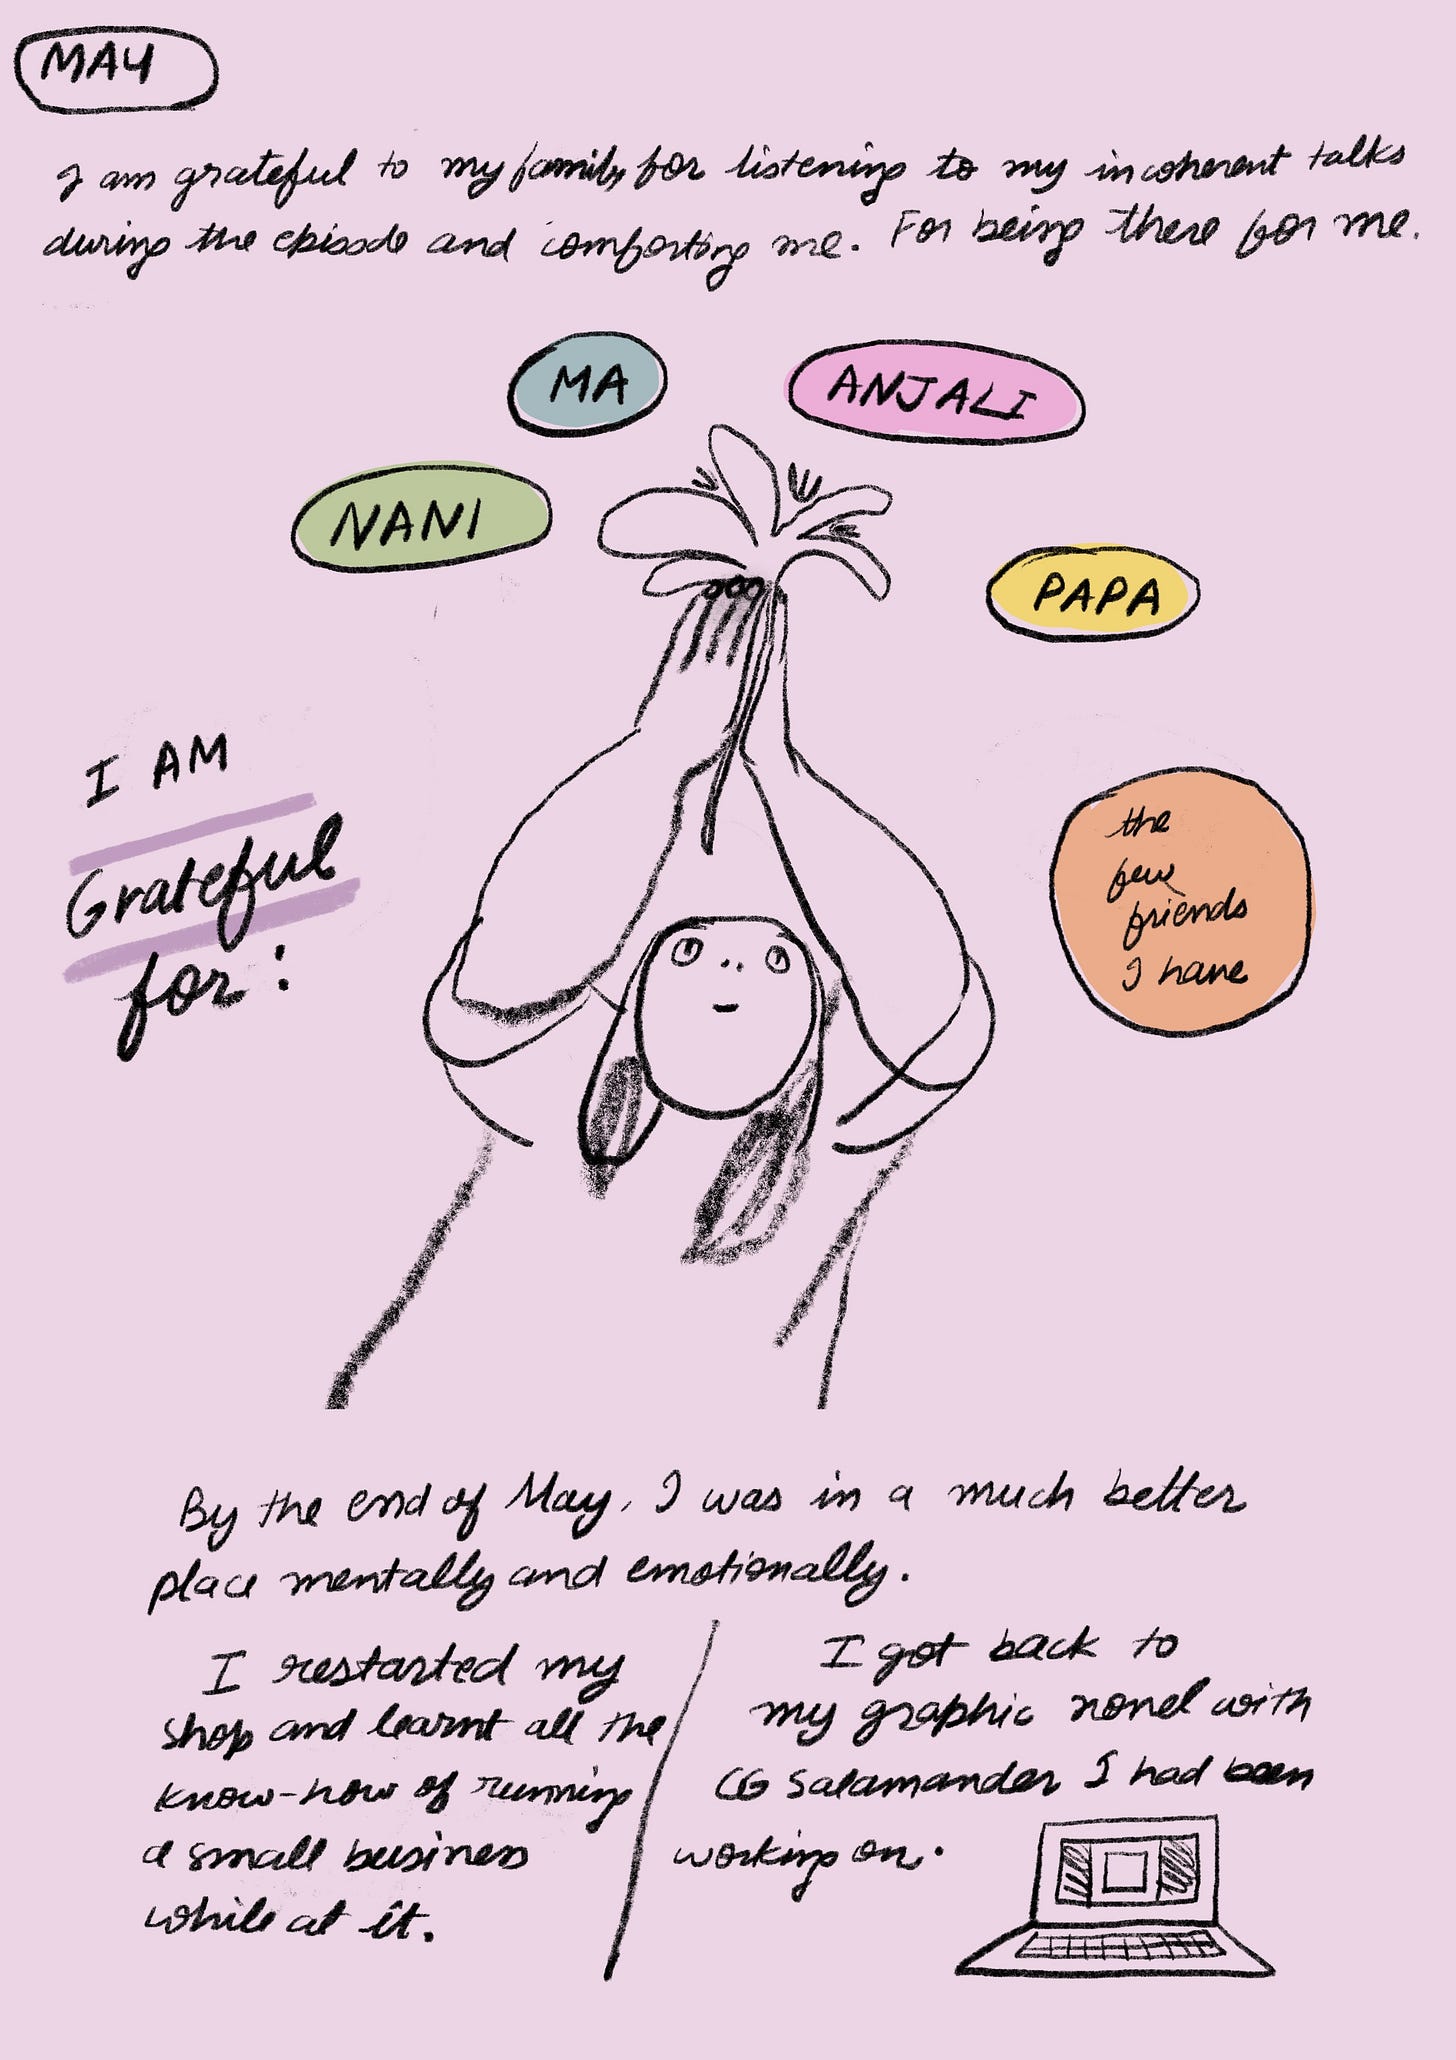 MAY
I am grateful to my family for listening to my incoherent talks
during the episode and comforting me. For being there for me.
MA
ANJALI
NANI
PAPA
I AM
Grateful
for:
the
few
friends
I have
By the end of May, I was in a much better
place mentally and emotionally.
I restarted my
shop and learnt all the
know-how of running
a small business
while at it.
I got back to
my graphic novel with
CG Salamander I had been
working on.